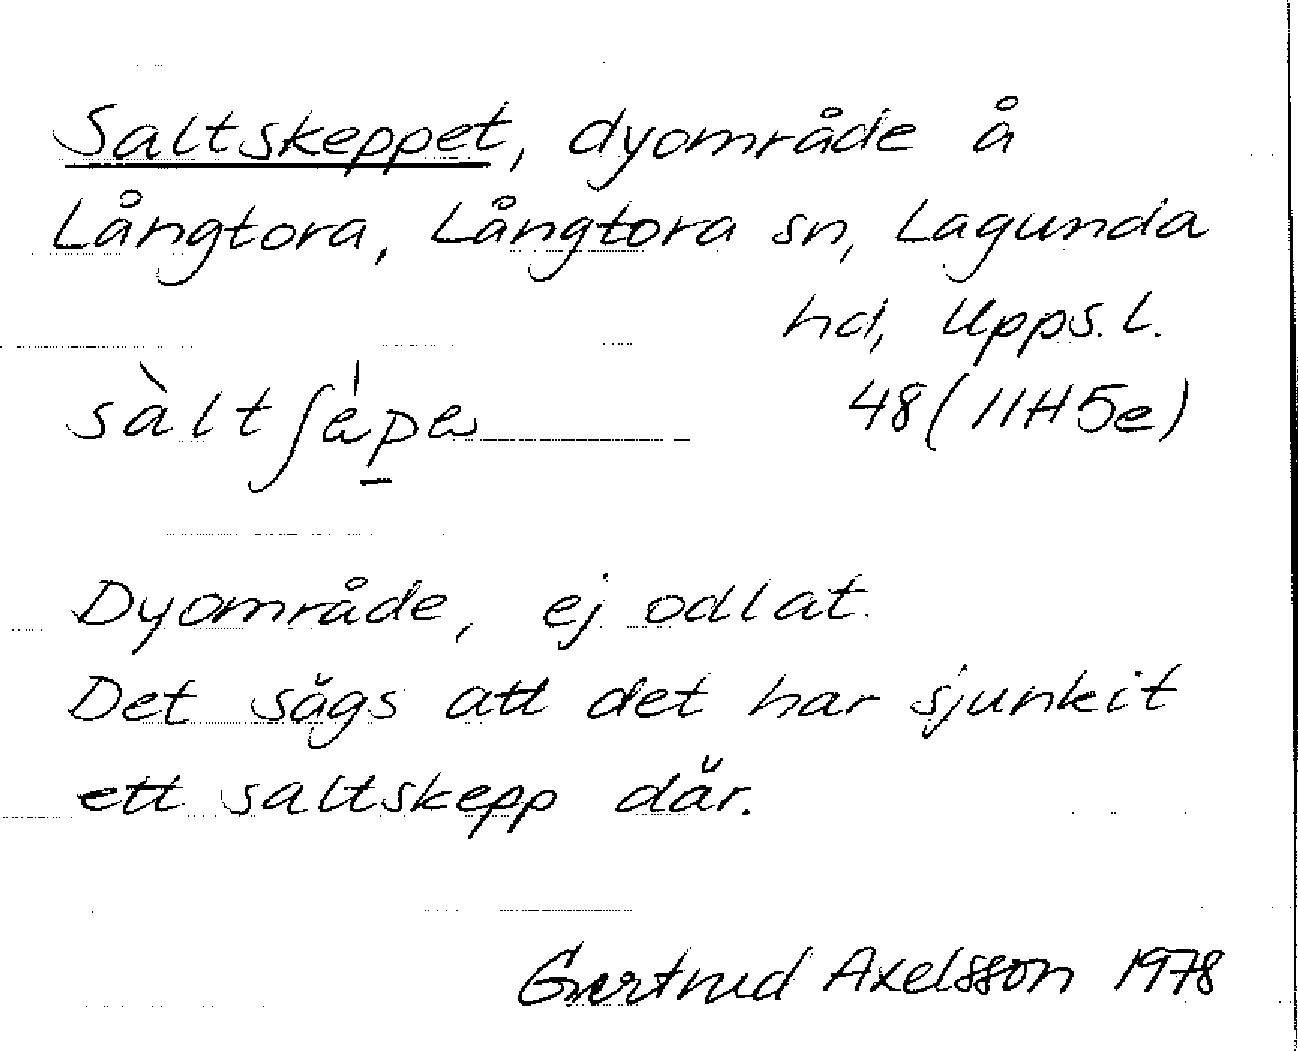 Saltskeppet, dyområde å
Långtora, Långtora sn, Lagunda
hd, Upps. l.
sàltʃèpe 48(11H5e)
Dyområde, ej odlat.
Det sägs att det har sjunkit
ett saltskepp där.
Gertrud Axelsson 1978